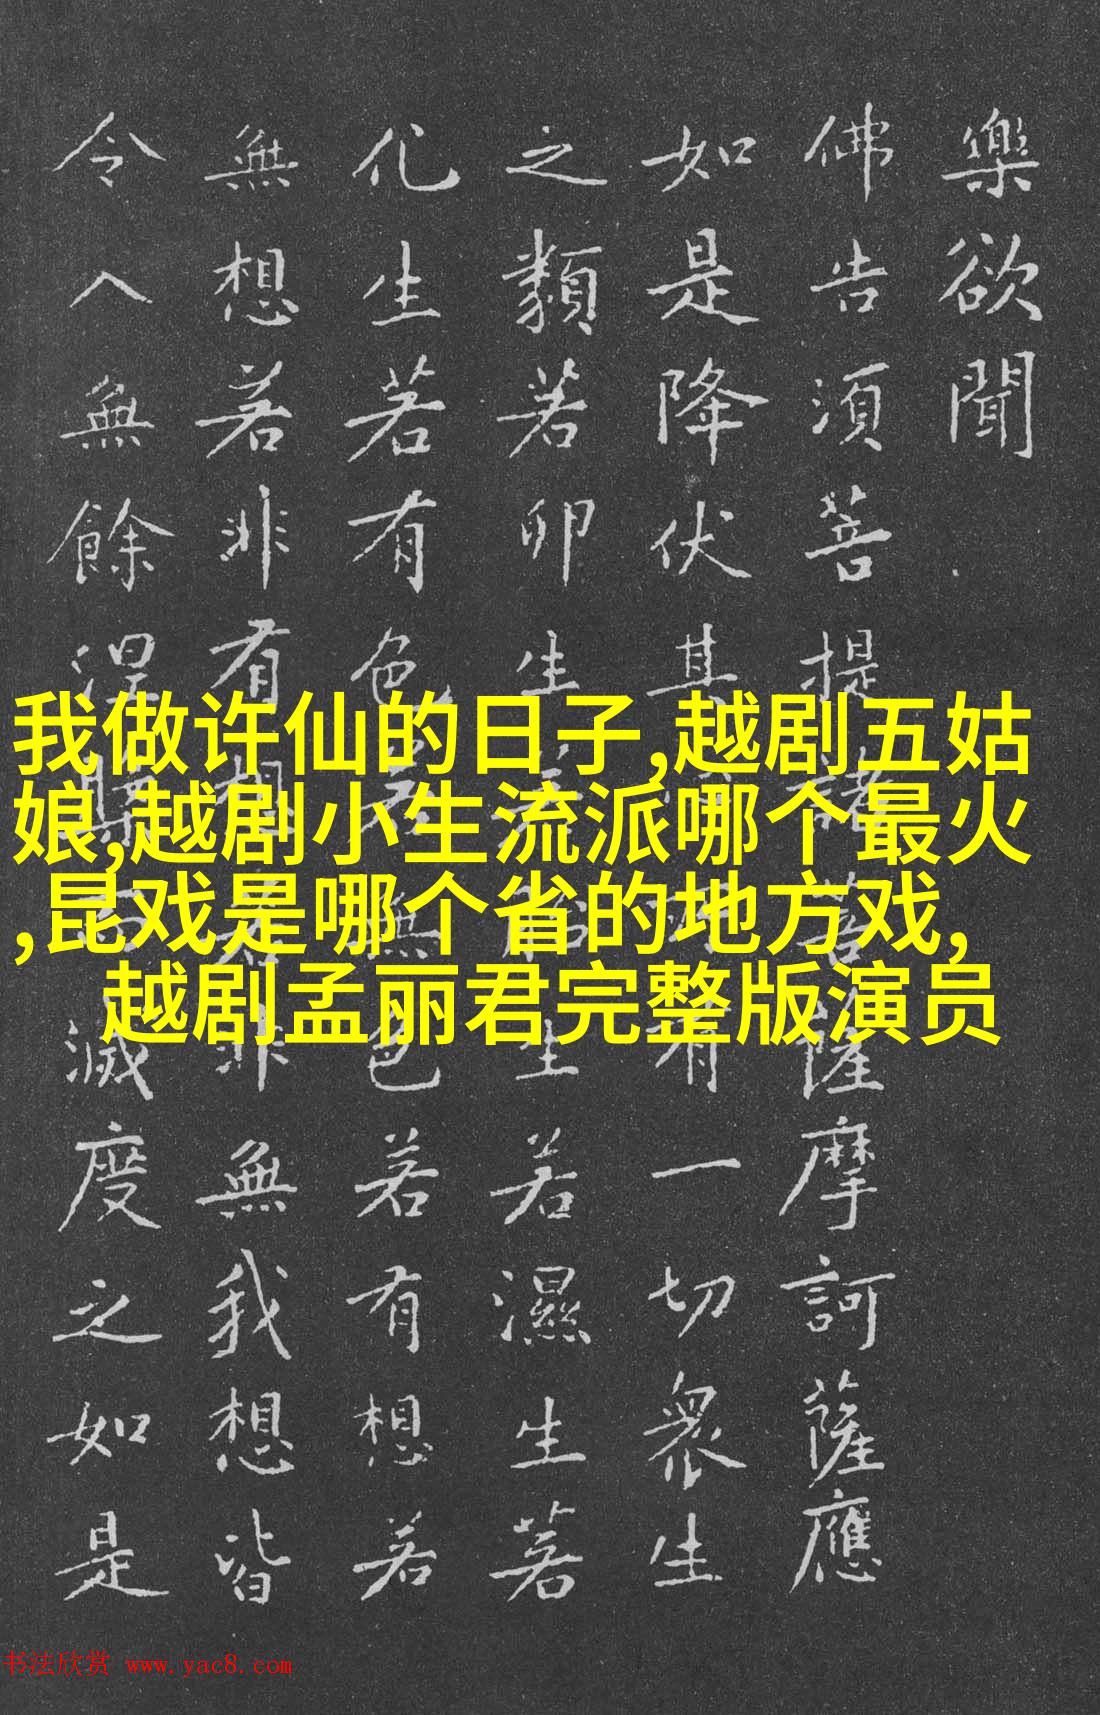 樂欲聞
佛告須菩提諸菩薩摩訶薩應
如是降伏其心所有一切衆生
之類若卵生若胎生若濕生若
化生若有色若無色若有想若
無想若非有想若非無我想皆
令入無餘涅槃而滅度之如是
我做许仙的日子,越剧五姑
娘,越剧小生流派哪个最火
,昆戏是哪个省的地方戏,
越剧孟丽君完整版演员
书法欣赏 www.yac8.com